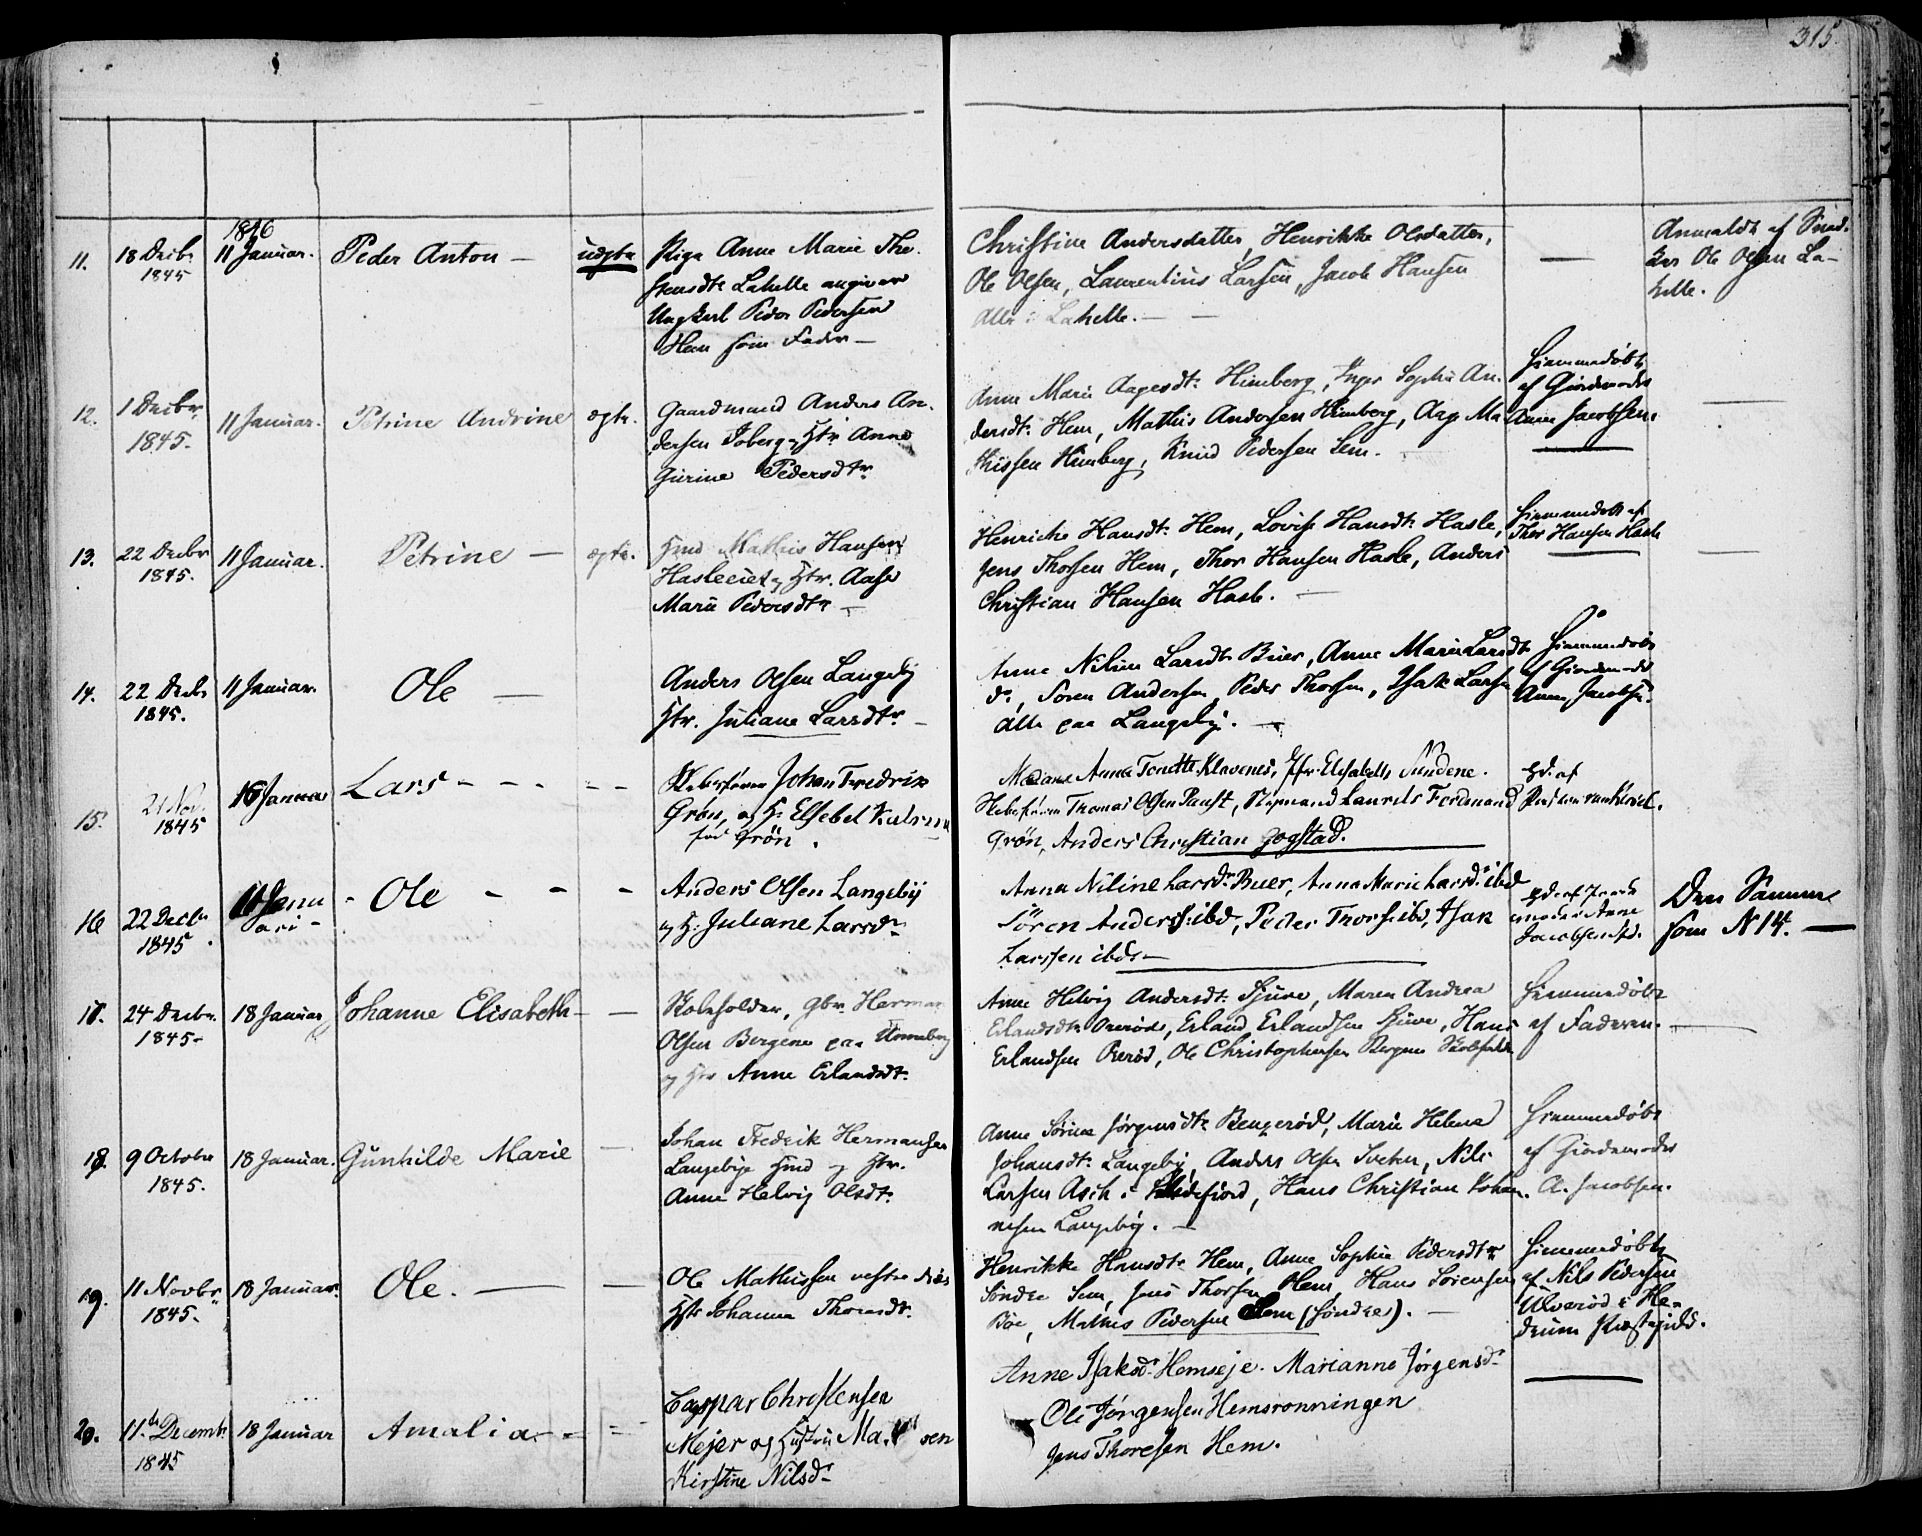 315.
1846
11. 18 Decbr. 11 Januar. Peder Anton — uægte Pige Anne Marie Tho-
1845
stensdtr Lahelle angiver
Ungkarl Peder Pedersen
Hem som Fader —
Christine Andersdatter, Henrikke Olsdatter,
Ole Olsen, Laurentius Larsen, Jacob Hansen
Alle i Lahelle. —
—
Anmeldt af
Ole Olsen La-
helle.
12. 1 Decbr. 11 Januar. Petrine Andrine ægte. Gaardmand Anders An-
1845.
dersen Hstr. Anne
Gurine Pedersdtr
Anne Marie Aagesdtr. Himberg, Inger Sophie An-
dersdtr. Hem, Mathis Andersen Himberg, Aage Ma-
thissen Himberg, Knud Pedersen Sem. -
Hiemmedøbt
af Giordemoder
Anne Jacobsen.
—
13. 22 Decbr 11 Januar. Petrine — ægte. Hmd Mathis Hansen
1845.
Hasleeiet og Hstr. Aase
Marie Pedersdtr —
Henrikke Hansdtr. Hem, Lovise Hansdtr. Hasle,
Jens Thorsen Hem, Thor Hansen Hasle, Anders
Christian Hansen Hasle. —
Hiemmedøbt af
Thor Hansen Hasle
—
14. 22 Decbr 11 Januar. Ole — Anders Olsen Langeby
1845.
Hstr. Juliane Larsdtr. —
Anne Niline Larsdtr. Buer, Anne Marie Larsdtr
do., Søren Andersen, Peder Thorsen, Isak Larsen
Alle paa Langeby. —
Hiemmedøbt
af Giordemoder
Anne Jacobsen.
15. 21 Nov. 16 Januar Lars - - - - - Skibsfører Johan Fredrik
1845
Grøn, og H. Elsebet
fød Grøn.
Madame Anne Tonette Klavenes, Jfr. Elisabeth Sundene.
Skibsfører Thomas Olsen Paust, Styrmand Laurets Ferdinand
Grøn, Anders Christian Gogstad.
Hd. af
16 22 Decbr 11 Janu- - Ole - - - Anders Olsen Langebÿ
1845. ari -
og H. Juliane Larsdr.
Anna Niline Larsdr. Buer, Anna Marie Larsd. ibd
Søren Anders. ibd, Peder Thors. ibd, Isak
Larssen ibd. —
Hd. af Jorde-
moder Anne
Jacobsen
Den Samme
som N 14. —
17. 24 Decbr. 18 Januar Johanne Elisabeth — — Skoleholder, Gbr. Herman
1845.
Olsen Bergene paa Unneberg
og Hstr Anne Erlandsdtr.
Anne Helvig Andersdtr. Sjuve, Maren Andrea
Erlandsdtr Ørerød, Erland Erlandsen Sjuve, Hans
Erlandsen Ørerød, Ole Christophersen Bergene Skoleholder
Hiemmedøbt
af Faderen.
—
18. 9 Octobr 18 Januar. Gunhilde Marie — Johan Fredrik Hermansen
1845.
Langebye Hmd og Hstr.
Anne Helvig Olsdtr.
Anne Sørine Jørgensdtr. Bengerød, Marie Helene
Johansdtr. Langeby, Anders Olsen Nils
Larsen Asch i Sandefiord, Hans Christian Johan-
nesen Langeby. —
Hiemmedøbt
af Giordemoder
A. Jacobsen.
19. 11 Novbr. 18 Januar. Ole. — — Ole Mathissen vestre
1845.
Hstr Johanne Thorsdtr.
Henrikke Hansdtr. Hem, Anne Sophie Pedersdtr
Søndre Sem, Jens Thorsen Hem, Hans Sørensen
Bøe, Mathis Pedersen Sem (søndre). —
Hiemmedøbt
af Nils Pedersen
Ulverød i He-
drum Præstegield.
20. 11te Decemb. 18 Januar Amalia. - - Caspar Christensen
1845
Mejer og Hustru
Kirstine Nilsd.
Anne Isaksd. Hemseje. Marianne Jørgensd.
Ole Jørgensen Hemsrønningen
Jens Thoresen Hem.
—